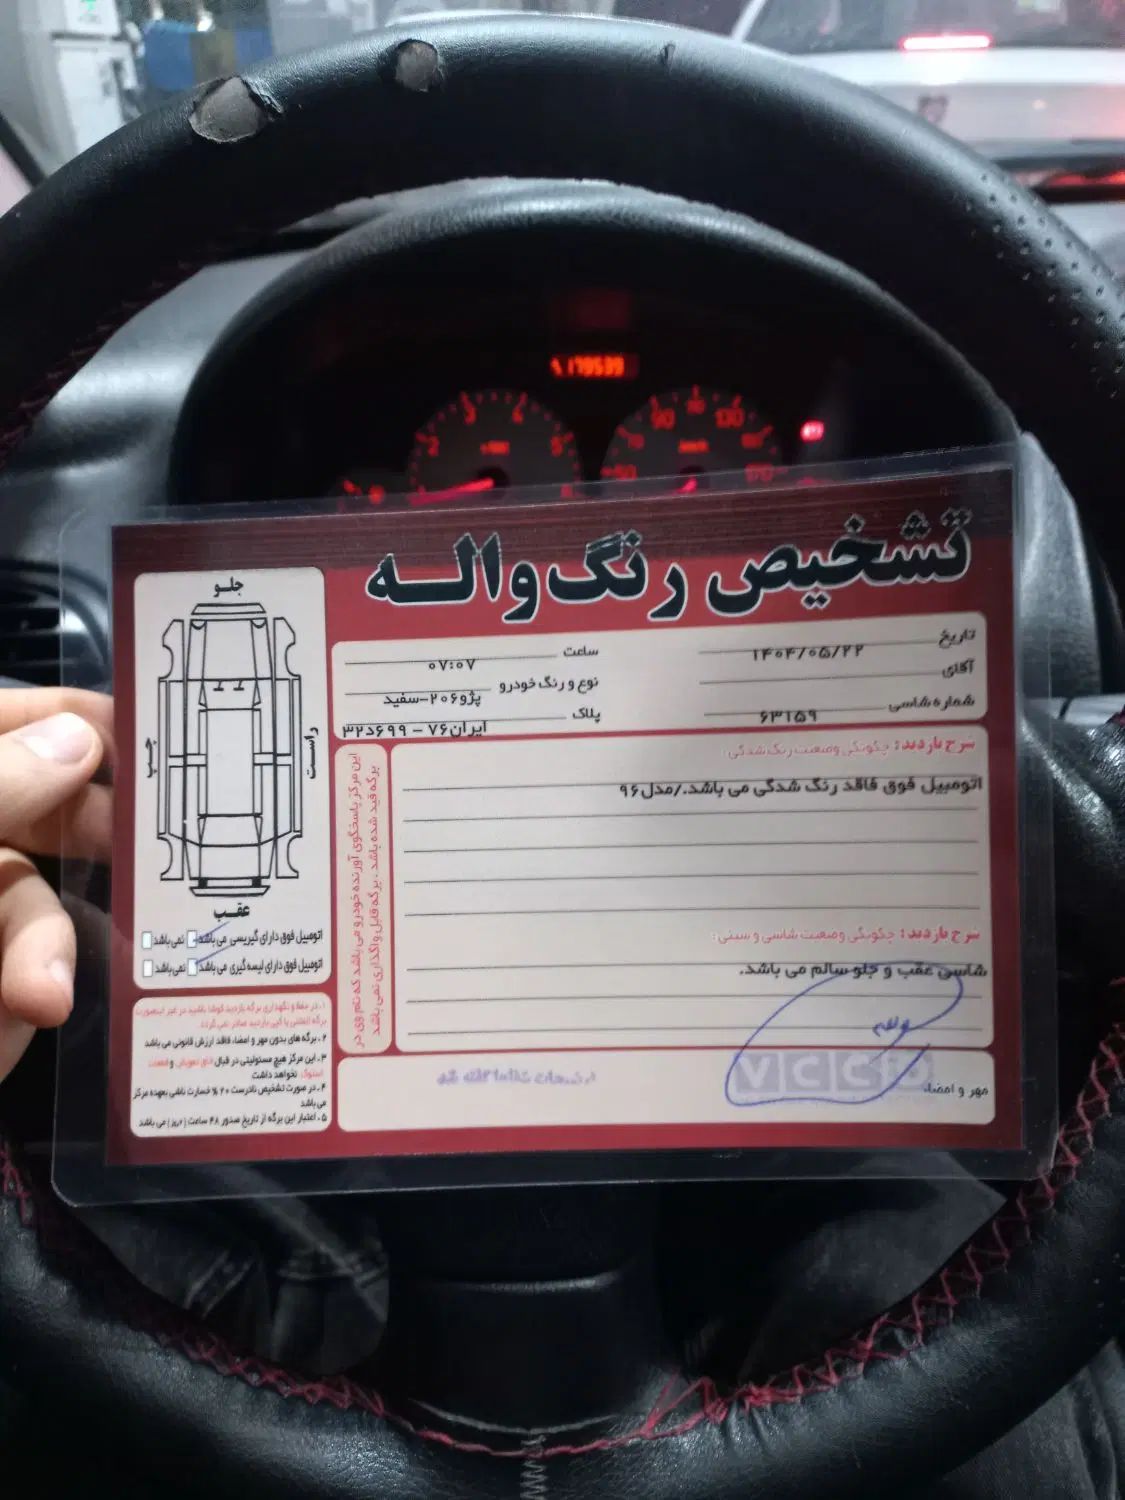 179539
تشخیص رنگ واله
تاریخ ۱۴۰۴/۰۵/۲۲
ساعت ۰۷:۰۷
آقای
نوع و رنگ خودرو پژو۲۰۶-سفید
شماره شاسی ۶۳۱۵۹
پلاک ایران۷۶ - ۶۹۹د۳۲
شرح بازدید: چگونگی وضعیت رنگ شدگی:
اتومبیل فوق فاقد رنگ شدگی می باشد./مدل۹۶
شرح بازدید: چگونگی وضعیت شاسی و سینی:
شاسی عقب و جلو سالم می باشد.
مهر و امضاء
VCC
جلو
چپ
راست
عقب
اتومبیل فوق دارای گیریسی می باشد نمی باشد
اتومبیل فوق دارای لیسه گیری می باشد نمی باشد
این مرکز پاسخگوی آورنده خودرو می باشد که نام وی در
برگه قید شده باشد. برگه قابل واگذاری نمی باشد
۱. در حفظ و نگهداری برگه بازدید کوشا باشید در غیر اینصورت
برگه المثنی یا کپی بازدید صادر نمی گردد.
۲. برگه های بدون مهر و امضاء فاقد ارزش قانونی می باشد
۳. این مرکز هیچ مسئولیتی در قبال اتاق تعویض و قطعات
استوک نخواهد داشت
۴. در صورت تشخیص نادرست ۲۰% خسارت ناشی بعهده مرکز
می باشد
۵. اعتبار این برگه از تاریخ صدور ۴۸ ساعت (۲روز) می باشد